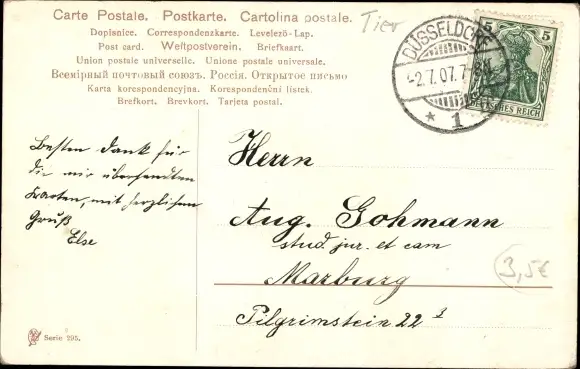 Carte Postale. Postkarte. Cartolina postale.
Dopisnice. Correspondenzkarte. Levelező-Lap.
Post card. Weltpostverein. Briefkaart.
Union postale universelle. Unione postale universale.
Всемірный почтовый союзъ. Россія. Открытое письмо
Karta korespondencyjna. Korespondenční lístek.
Brefkort. Brevkort. Tarjeta postal.
Tier
DÜSSELDORF
-2.7.07.7-8
* 1
5 5
DEUTSCHES REICH
Besten Dank für
die mir übersandten
Karten, mit herzlichem
Gruß
Else
Herrn
Aug. Gohmann
stud. jur. et cam
Marburg
Pilgrimstein 22
3,5€
Serie 295.